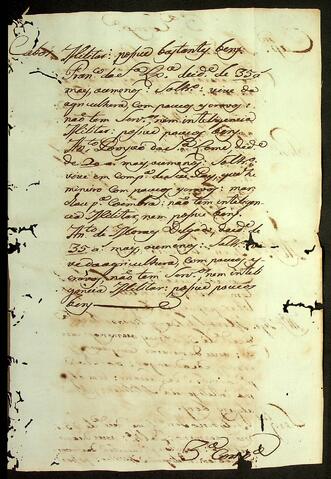 Cabos
Militar: possue bastantes bens.
Fran.co da S.a Lx.a de id.e de 35 a.
mais, ou menos: Solt.ro: vive da
agricultura, com poucos escravos:
não tem Serv.os, nem intelligencia
Militar: possue poucos bens.
da S.a Leme, de id.e
de 20 a. mais, ou menos: Solt.ro
vive em Comp.a de seu Pay, que he
mineiro com poucos escravos:
não tem intelligen
cia Militar, nem possue bens.
Ant.o de Moraes de id.e de
35 a. mais, ou menos: Solt.ro: vi
ve da agricultura, com poucos es
cravos: não tem Serv.os, nem intelli
gencia Militar: possue poucos
bens
3.a Comp.a